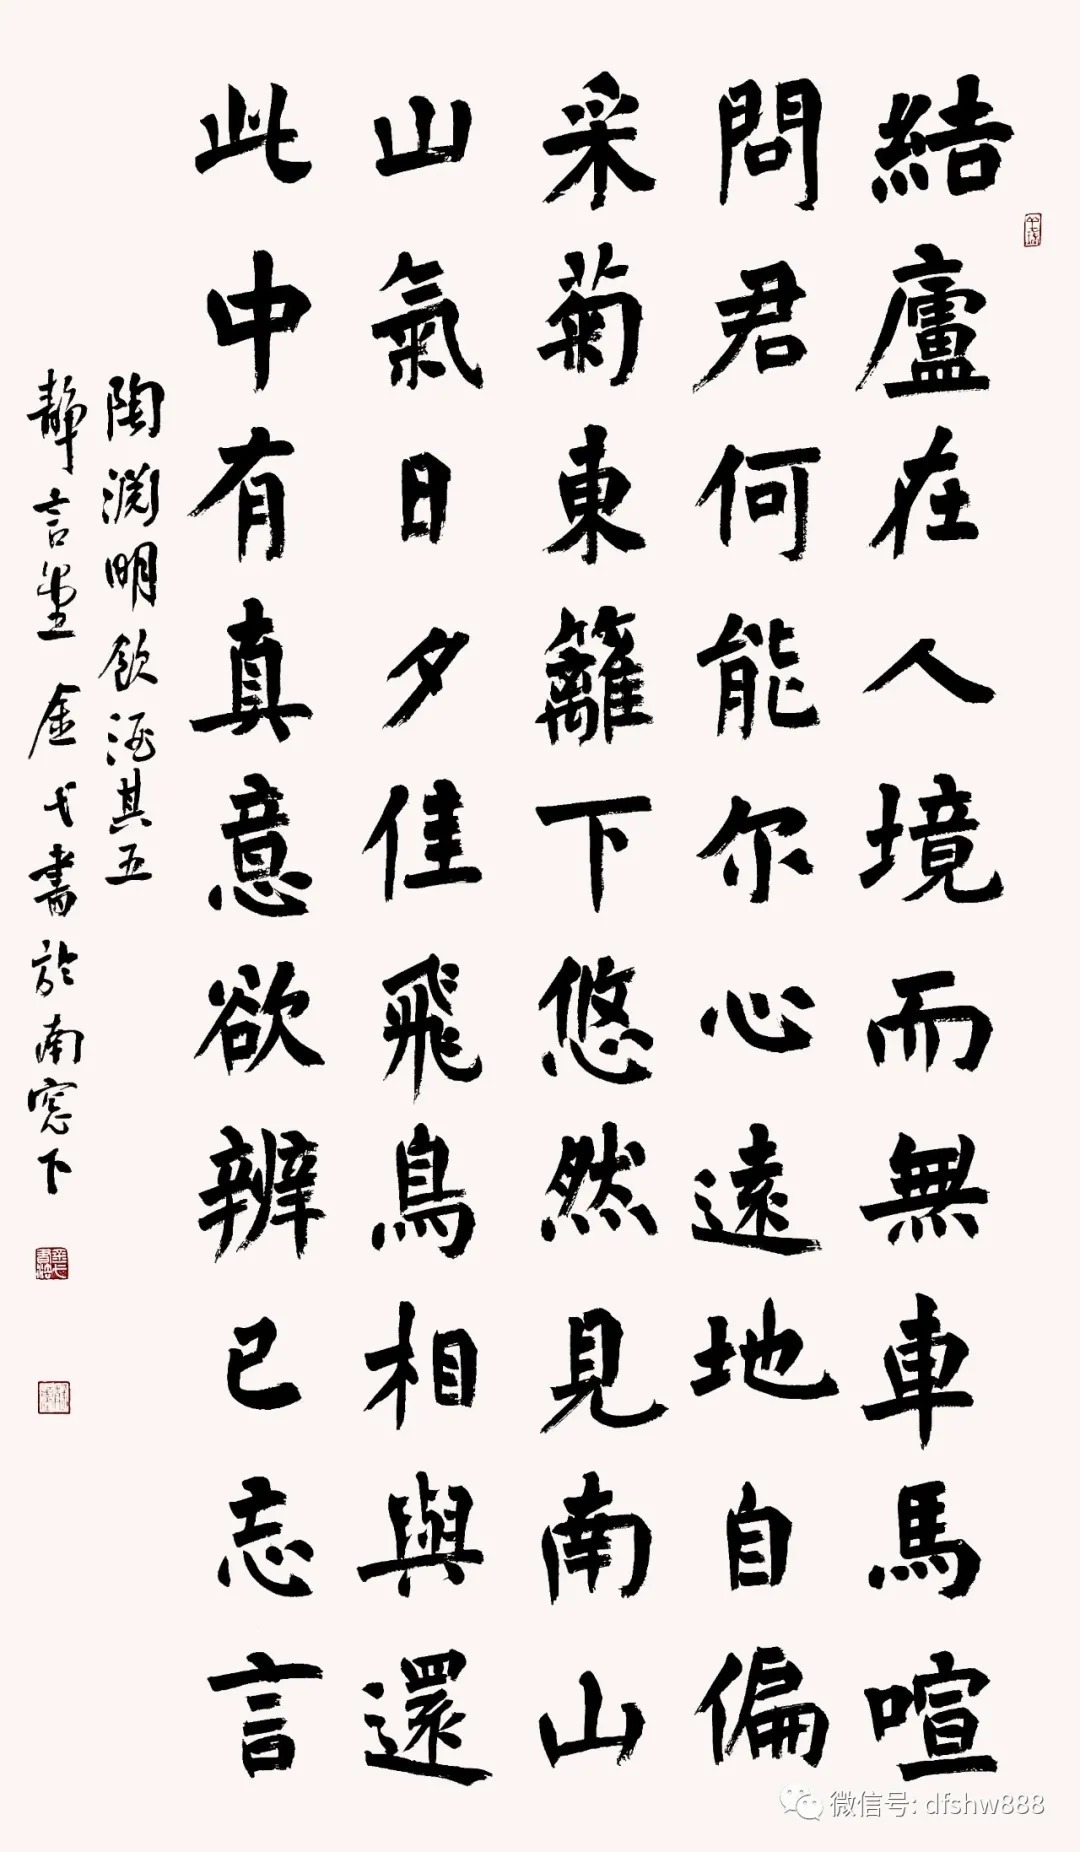 結廬在人境而無車馬喧
問君何能尔心遠地自偏
采菊東籬下悠然見南山
山氣日夕佳飛鳥相與還
此中有真意欲辨已忘言
陶淵明飲酒其五
靜言堂金弋書於南窓下
微信号: dfshw888